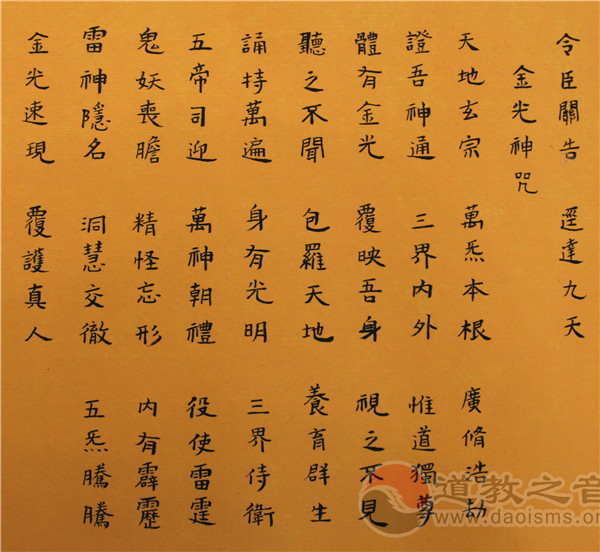 令臣關告 逕達九天
金光神咒
天地玄宗 萬炁本根 廣脩浩劫
證吾神通 三界內外 惟道獨尊
體有金光 覆映吾身 視之不見
聽之不聞 包羅天地 養育群生
誦持萬遍 身有光明 三界侍衛
五帝司迎 萬神朝禮 役使雷霆
鬼妖喪膽 精怪忘形 內有霹靂
雷神隱名 洞慧交徹 五炁騰騰
金光速現 覆護真人
道教之音
www.daoisms.org